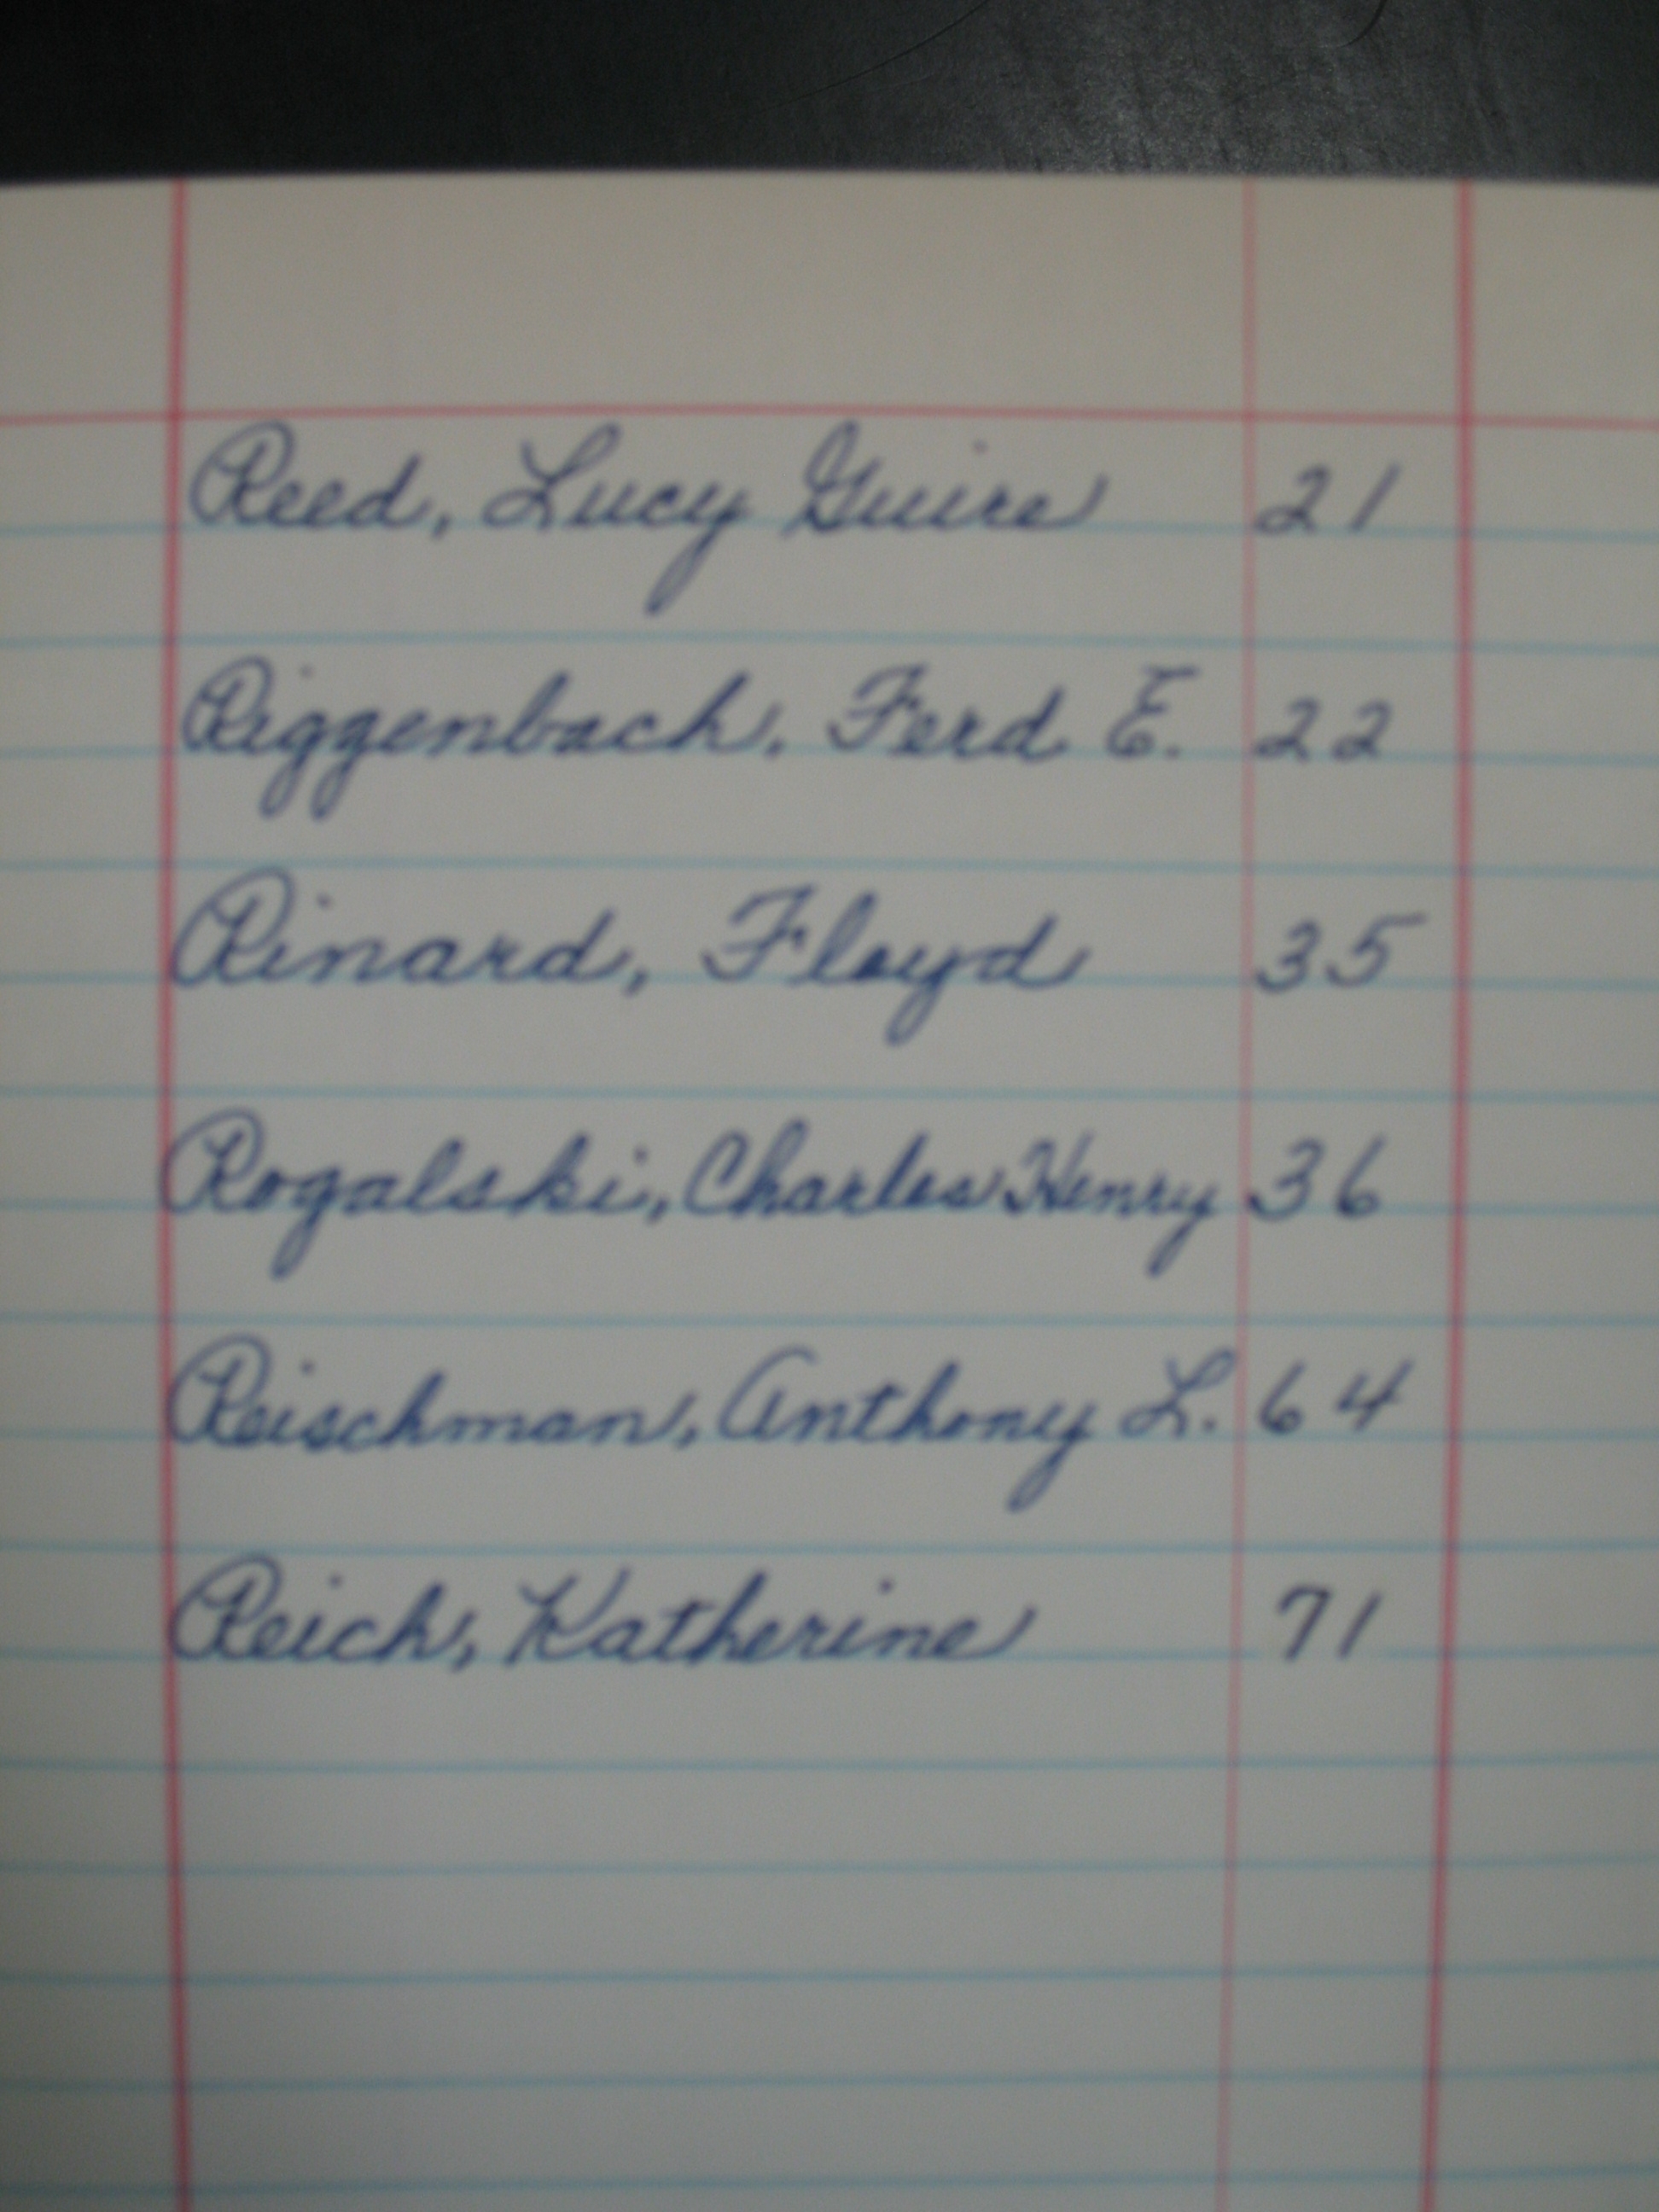 Reed, Lucy Guire 21
Riggenbach, Ferd E. 22
Rinard, Floyd 35
Rogalski, Charles Henry 36
Reischman, Anthony L. 64
Reich, Katherine 71